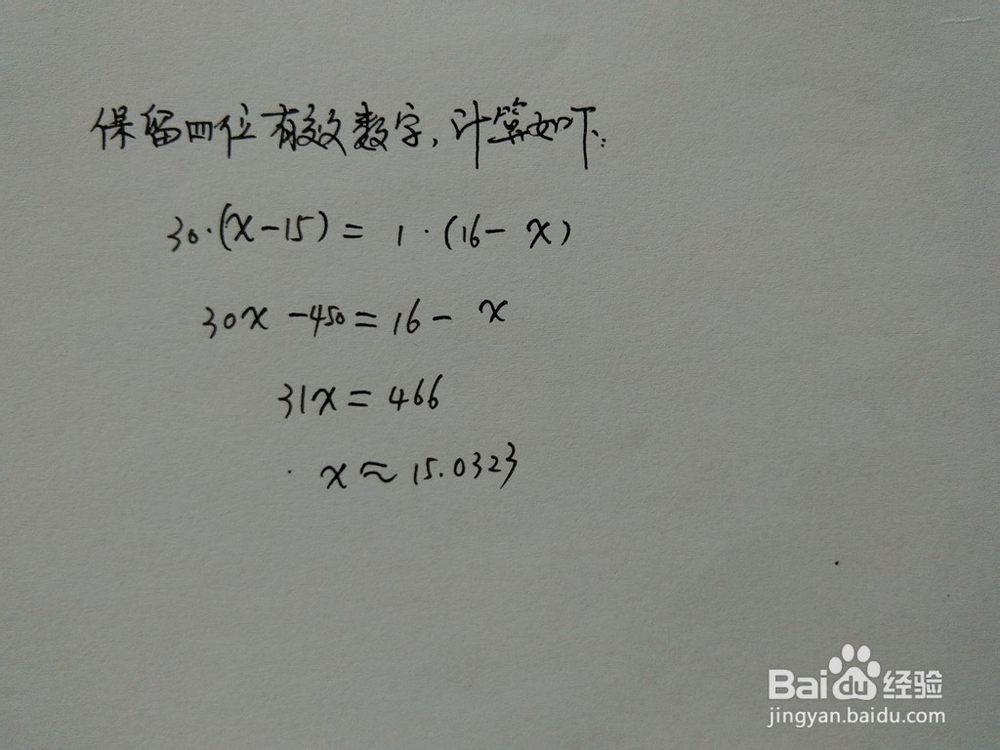 保留四位有效数字,计算如下:
30·(x-15)=1·(16-x)
30x-450=16-x
31x=466
x≈15.0323
Baidu经验
jingyan.baidu.com